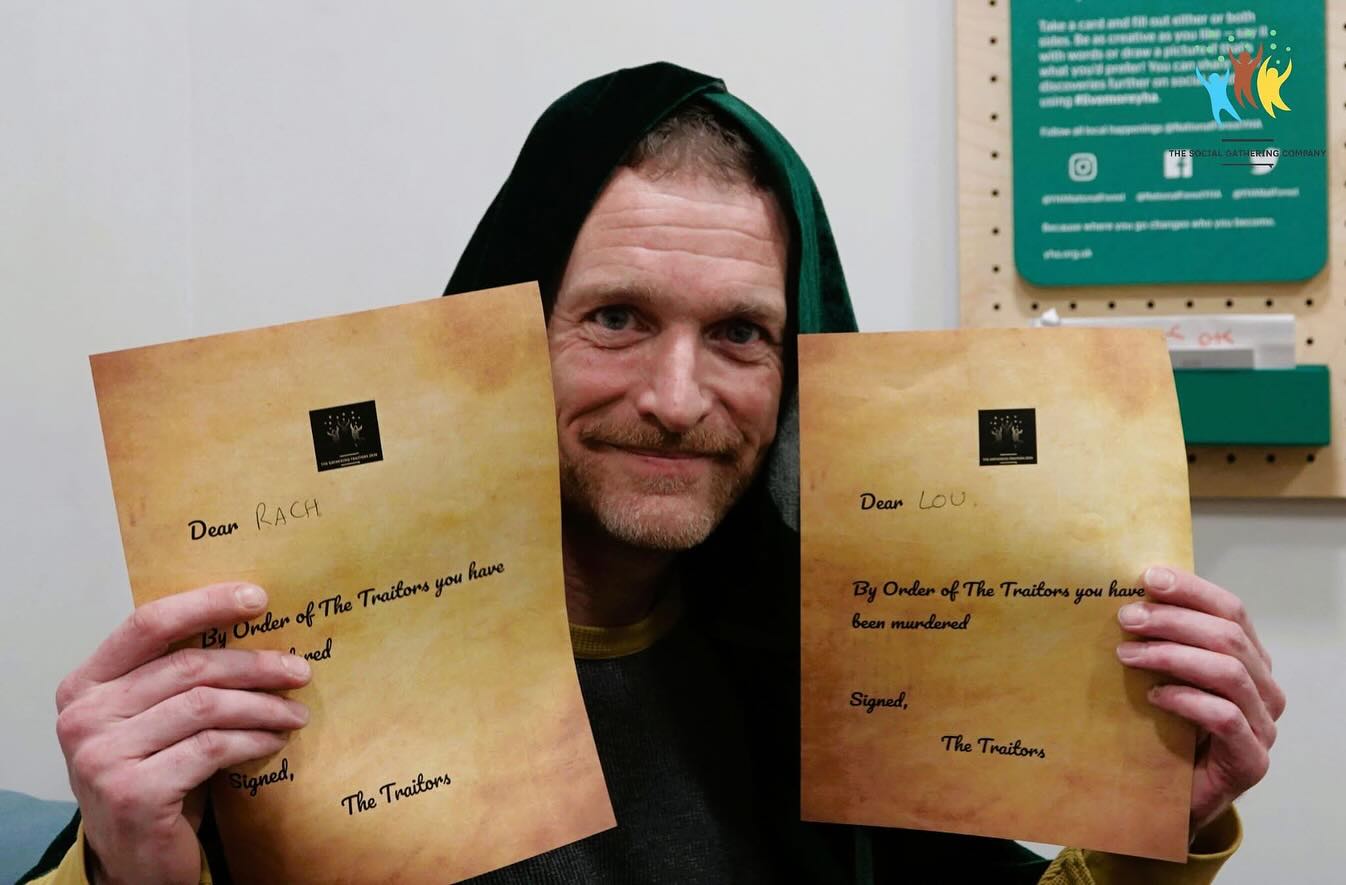 Take a card and fill out either or both
sides. Be as creative as you like – say it
with words or draw a picture if that's
what you'd prefer! You can share
discoveries further on social
using #livemoreyha.
Follow all local happenings @NationalForestYHA
THE SOCIAL GATHERING COMPANY
@YHANationalForest @NationalForestYHA
Because where you go changes who you become.
yha.org.uk
THE GATHERING TRAITORS
Dear RACH
By Order of The Traitors you have
Signed,
The Traitors
THE GATHERING TRAITORS
Dear LOU.
By Order of The Traitors you have
been murdered
Signed,
The Traitors